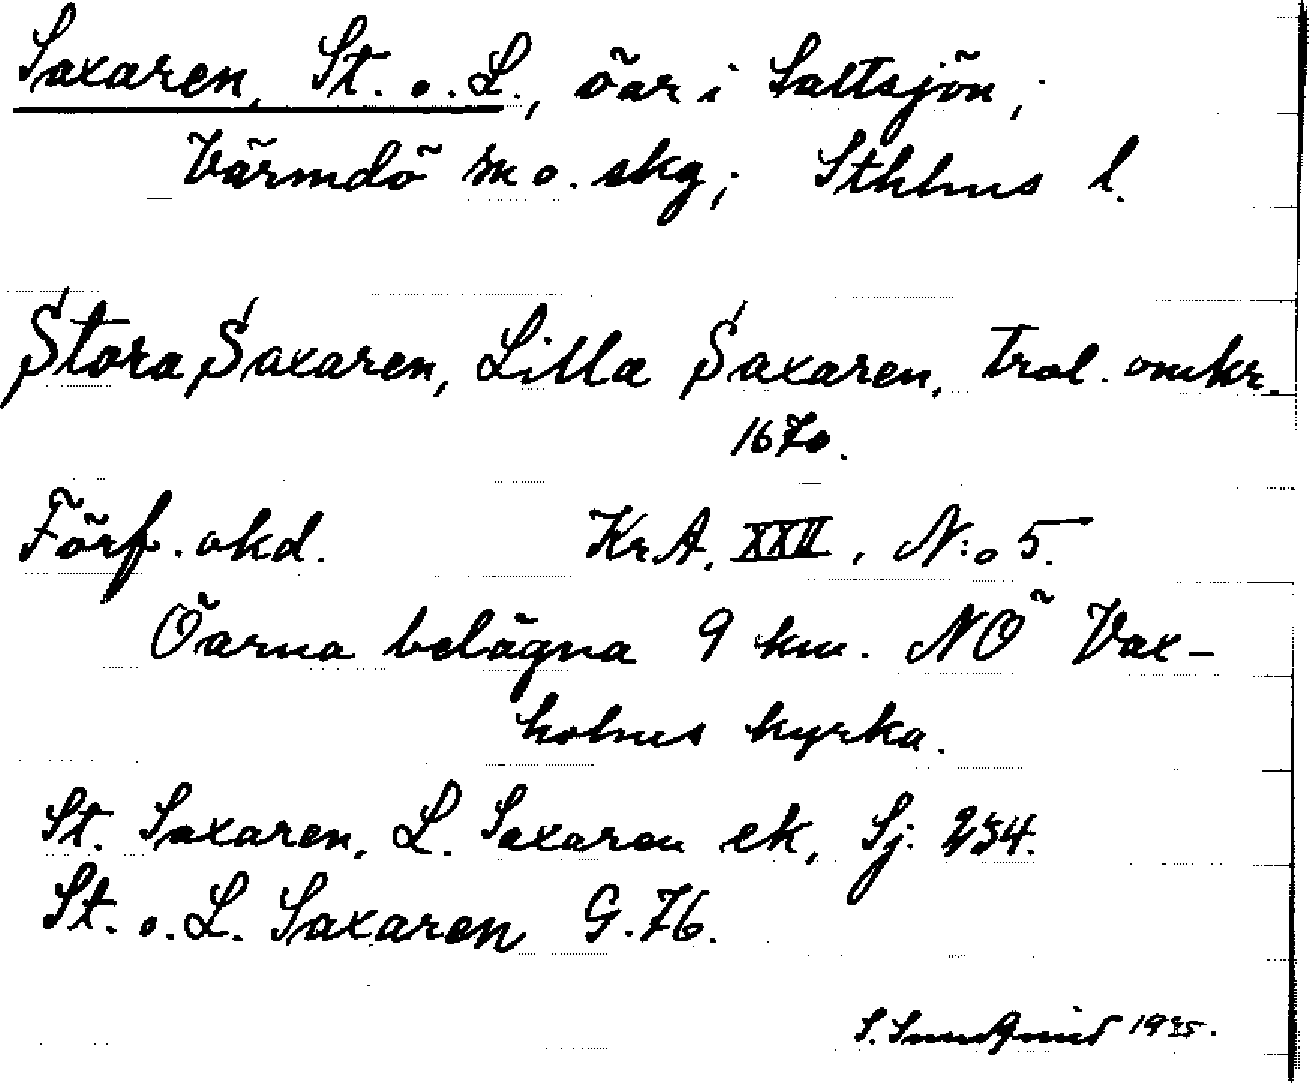 Saxaren, St. o. L., öar i Saltsjön,
Värmdö sk o. skg; Sthlms l.
Stora Saxaren, Lilla Saxaren, trol. omkr.
1670.
Förf. okd. Kr.A. XXII, N:o 5.
Öarna belägna 9 km. NÖ Vax-
holms kyrka.
St. Saxaren, L. Saxaren ek, Sj. 234.
St. o. L. Saxaren G. 76.
S. Sundqvist 1935.